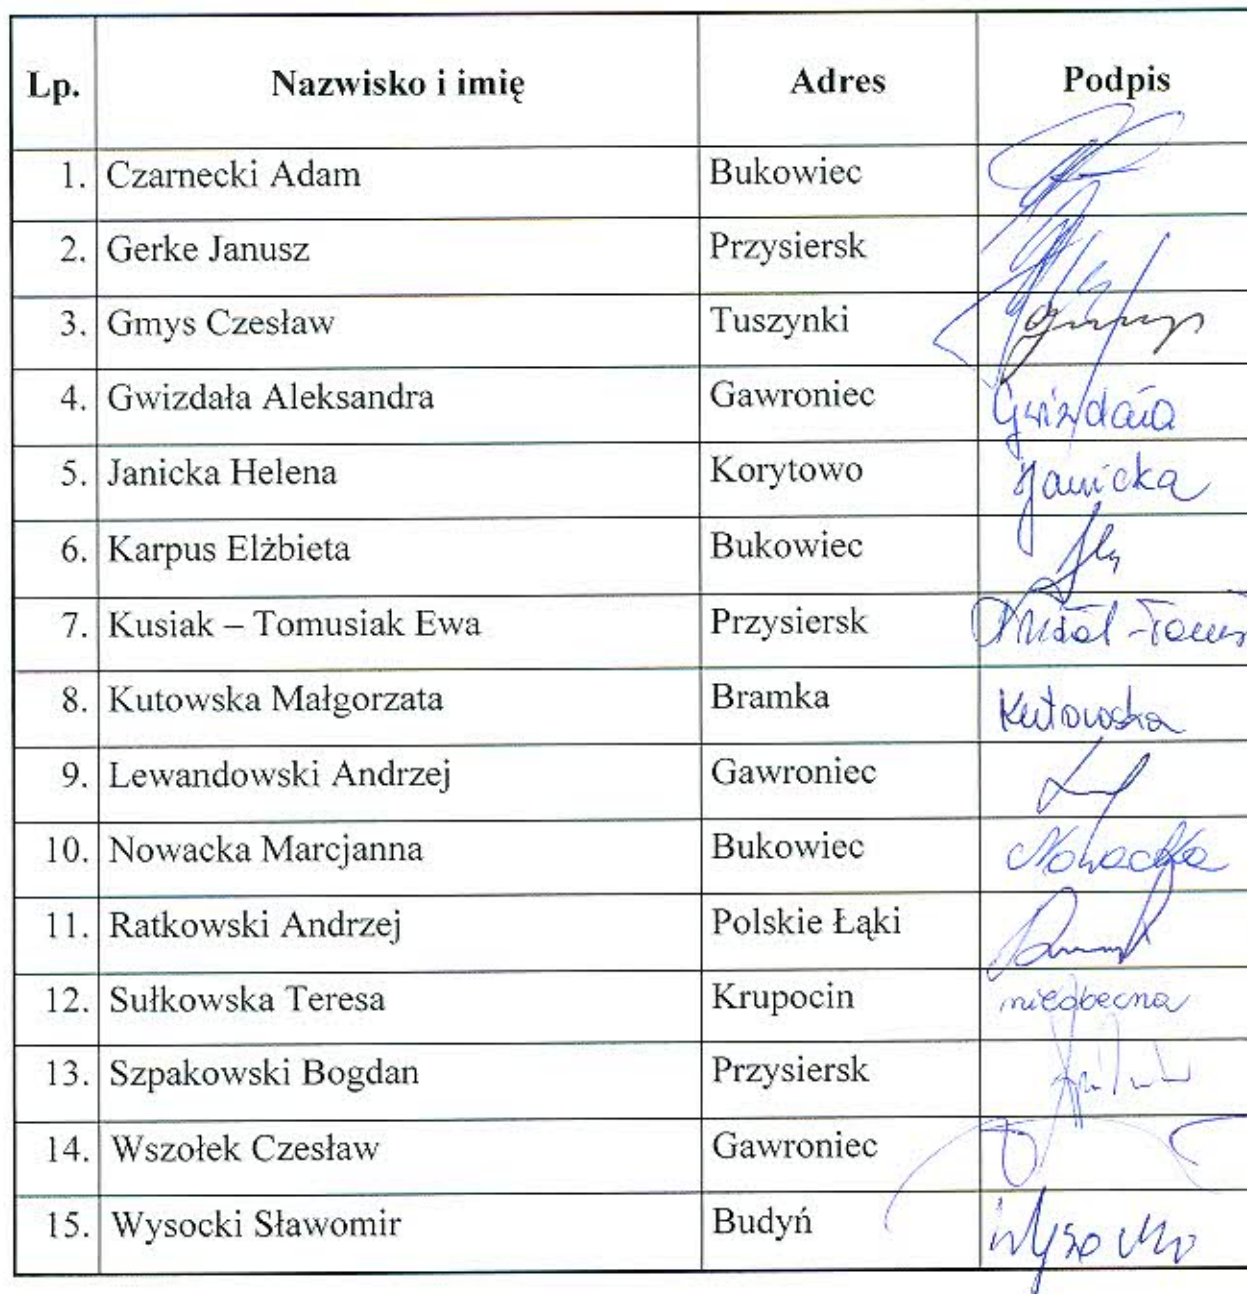 Lp. Nazwisko i imię Adres Podpis
1. Czarnecki Adam Bukowiec
2. Gerke Janusz Przysiersk
3. Gmys Czesław Tuszynki
4. Gwizdała Aleksandra Gawroniec Gwizdała
5. Janicka Helena Korytowo Janicka
6. Karpus Elżbieta Bukowiec
7. Kusiak – Tomusiak Ewa Przysiersk
8. Kutowska Małgorzata Bramka Kutowska
9. Lewandowski Andrzej Gawroniec
10. Nowacka Marcjanna Bukowiec Nowacka
11. Ratkowski Andrzej Polskie Łąki
12. Sułkowska Teresa Krupocin nieobecna
13. Szpakowski Bogdan Przysiersk
14. Wszołek Czesław Gawroniec
15. Wysocki Sławomir Budyń